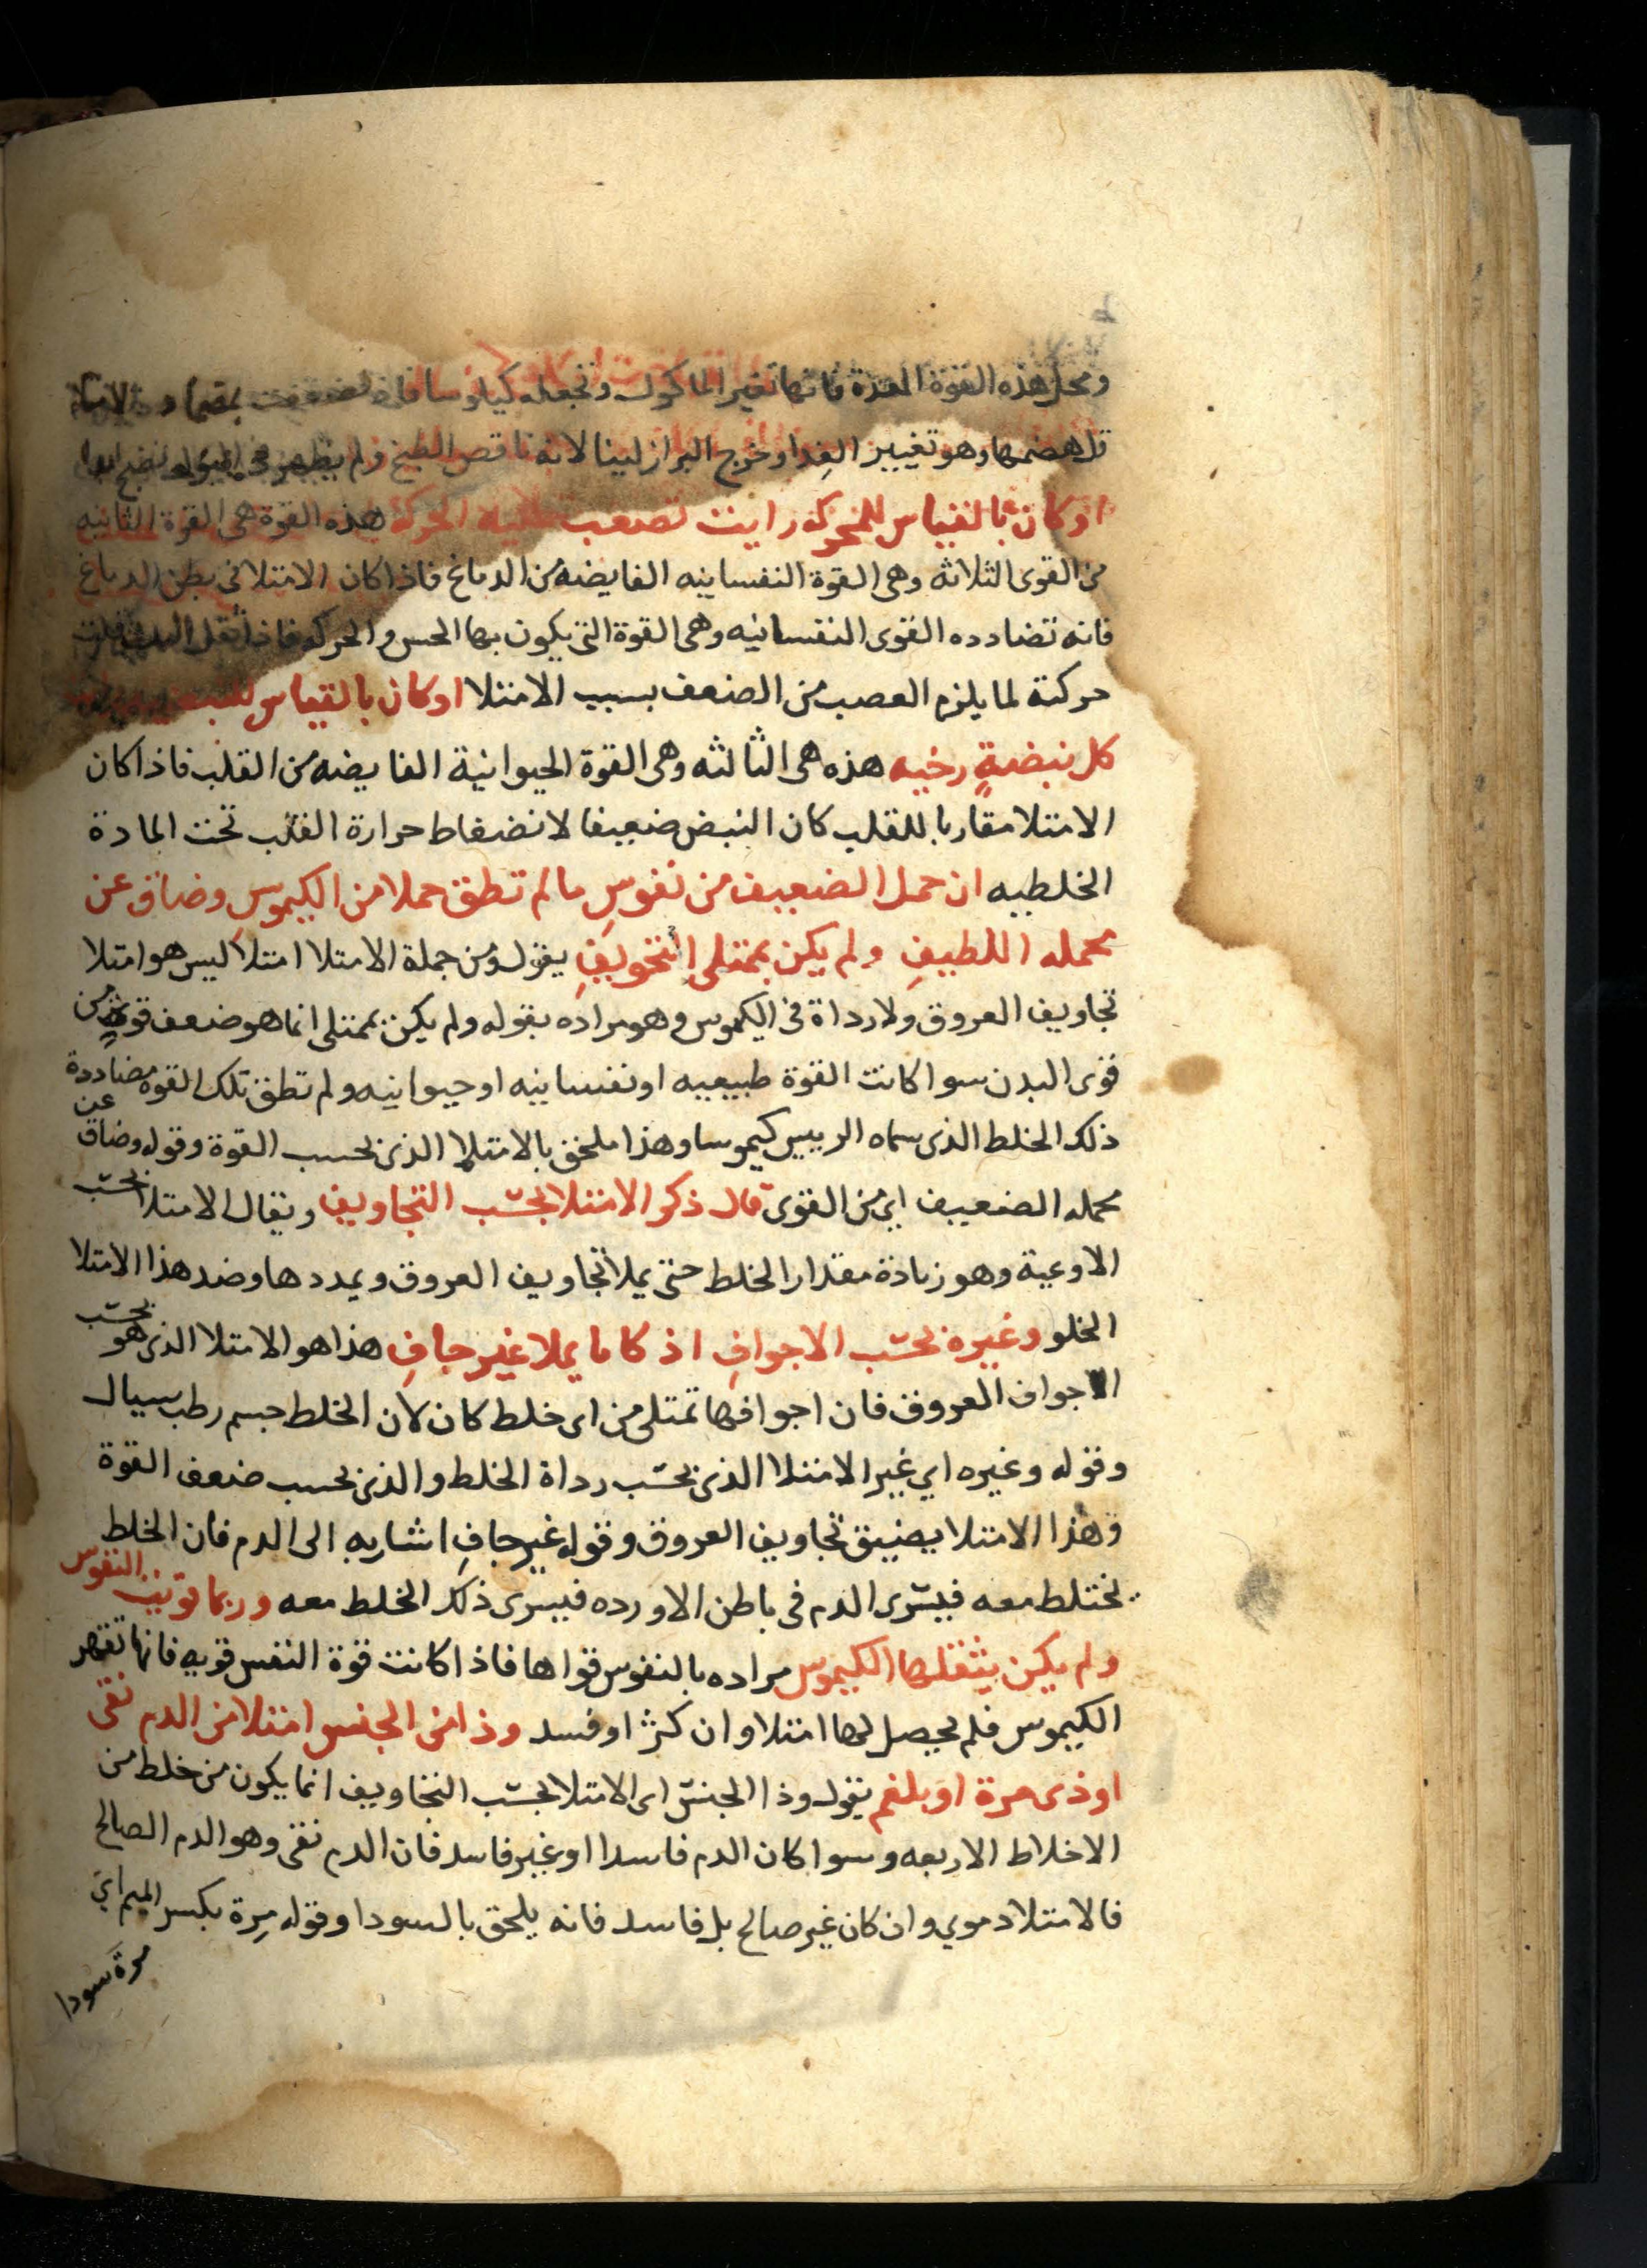 ومحل هذه القوة المعدة فانها تغير الماكول وتجعله كيلوسا فاذا ضعفت
قل هضمها وهو تغيير الغدا وخرج البراز لينا لانه ناقص الطبخ ولم يظهر في البول نضج ابدا
او كان بالقياس للمحركه رايت تصعب عليه الحركة هذه القوة هي القوة الثانيه
من القوى الثلاثه وهي القوة النفسانيه الفايضه من الدماغ فاذا كان الامتلا في بطن الدماغ
فانه تضادده القوى النفسانيه وهي القوة التي يكون بها الحس والحركه فاذا ثقل البدن قلت
حركتة لما يلزم العصب من الضعف بسبب الامتلا او كان بالقياس للنبضيه
كل نبضةٍ رخيه هذه هي الثالثه وهي القوة الحيوانية الفايضه من القلب فاذا كان
الامتلا مقاربا للقلب كان النبض ضعيفا لانضغاط حرارة القلب تحت المادة
الخلطيه ان حمل الضعيف من نفوسِ مالم تطق حملا من الكيموسِ وضاق عن
محمله اللطيفِ ولم يكن بممتلى التجويفِ يقول ومن جملة الامتلا امتلا ليس هو امتلا
تجاويف العروق ولا رداة في الكيموس وهو مراده بقوله ولم يكن بممتلى انما هو ضعف قوةٍ من
قوى البدن سوا كانت القوة طبيعيه او نفسانيه او حيوانيه ولم تطق تلك القوه مضاددة
ذلك الخلط الذي سماه الرييس كيموسا وهذا ملحق بالامتلا الذي بحسب القوة وقوله وضاق عن
محمله الضعيف اي من القوى قال ذكر الامتلا بحسب التجاويف ويقال الامتلا بحسب
الاوعية وهو زيادة مقدار الخلط حتى يملا تجاويف العروق ويمددها وضد هذا الامتلا
الخلو وغيره بحسب الاجوافِ اذ كا ما يملا غير جافِ هذا هو الامتلا الذي هو بحسب
الاجواف العروق فان اجوافها تمتلى من اى خلط كان لان الخلط جسم رطب سيال
وقوله وغيره اي غير الامتلا الذي بحسب رداة الخلط والذي بحسب ضعف القوة
وهذا الامتلا يضيق تجاويف العروق وقوله غير جافِ اشار به الى الدم فان الخلط
يختلط معه فيسرى الدم فى باطن الاورده فيسرى ذلك الخلط معه وربما قويت النفوس
ولم يكن يثقلها الكيموس مراده بالنفوس قواها فاذا كانت قوة النفس قويه فانها تقهر
الكيموس فلم يحصل لها امتلا وان كثر او فسد وذا من الجنس امتلا من الدم نقى
او ذى مرة او بلغم يقول وذا الجنس اى الامتلا بحسب التجاويف انما يكون من خلط من
الاخلاط الاربعه وسوا كان الدم فاسدا او غير فاسد فان الدم نقى وهو الدم الصالح
فالامتلا دموي وان كان غير صالح بل فاسد فانه يلحق بالسودا وقوله مِرة بكسر الميم اي
مرة سودا